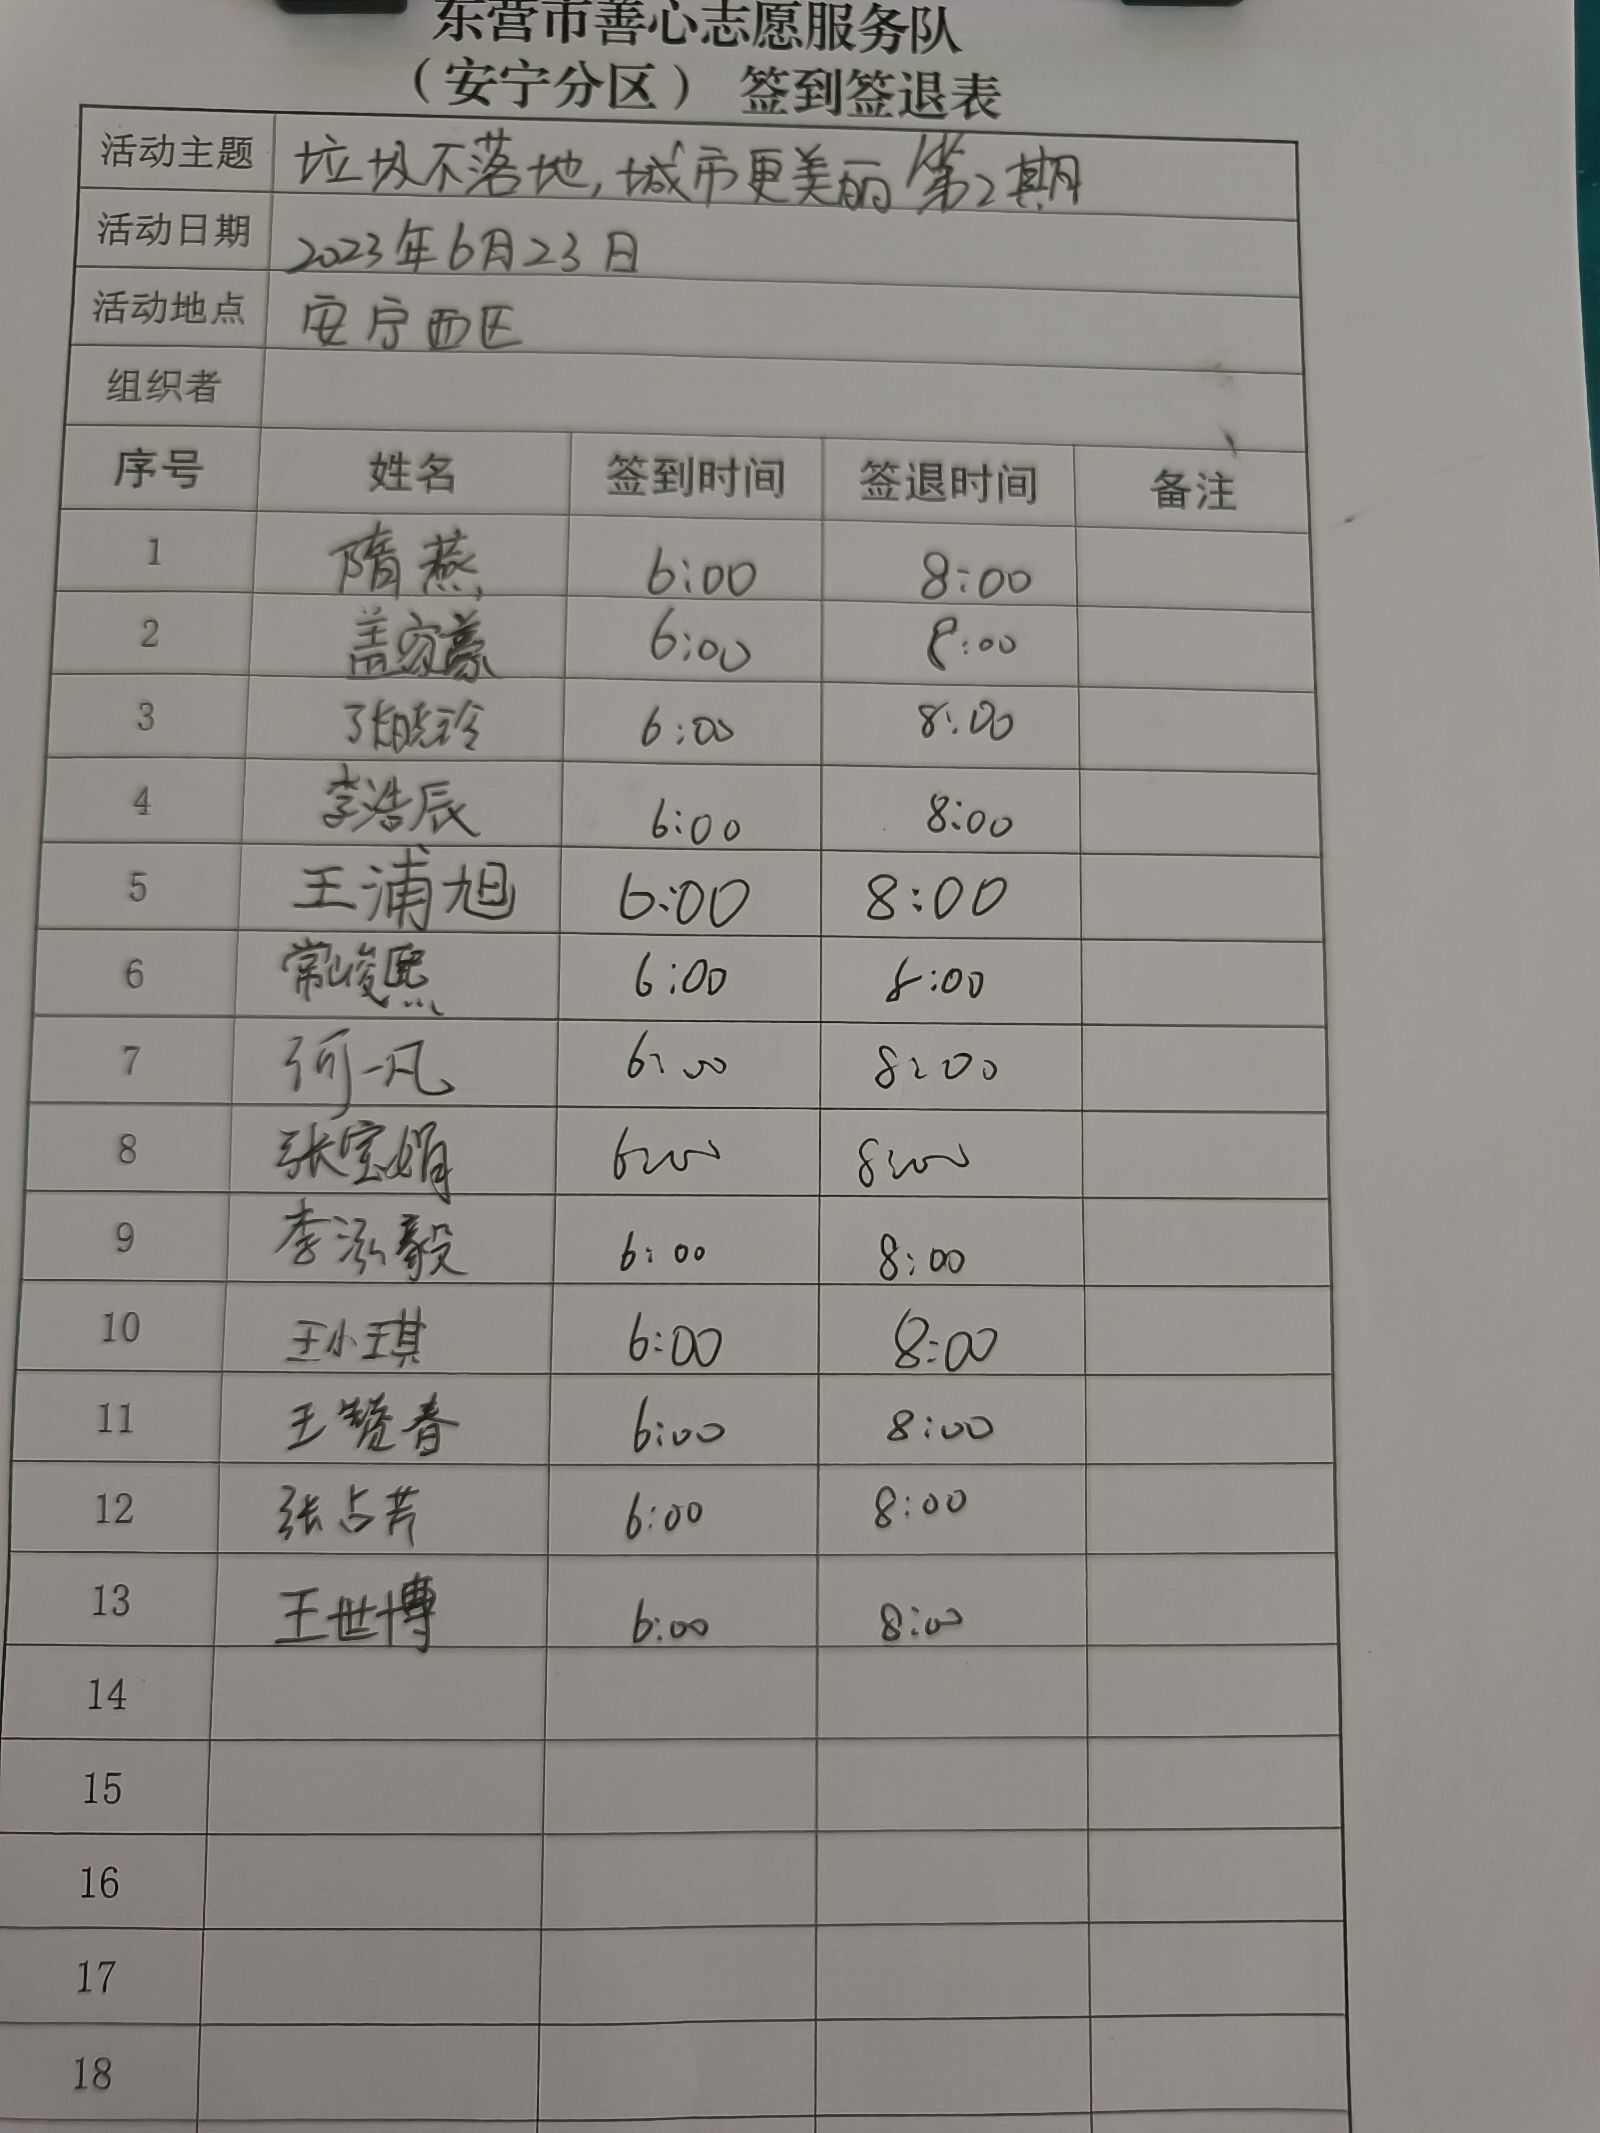 东营市善心志愿服务队
（安宁分区） 签到签退表
活动主题 垃圾不落地,城市更美丽第2期
活动日期 2023年6月23日
活动地点 安宁西区
组织者
序号 姓名 签到时间 签退时间 备注
1 隋燕 6:00 8:00
2 盖家豪 6:00 8:00
3 张晓玲 6:00 8:00
4 李浩辰 6:00 8:00
5 王浦旭 6:00 8:00
6 常峻熙 6:00 8:00
7 何一凡 6:00 8:00
8 张宝娟 6:00 8:00
9 李泓毅 6:00 8:00
10 王小琪 6:00 8:00
11 王赞春 6:00 8:00
12 张占芹 6:00 8:00
13 王世博 6:00 8:00
14
15
16
17
18